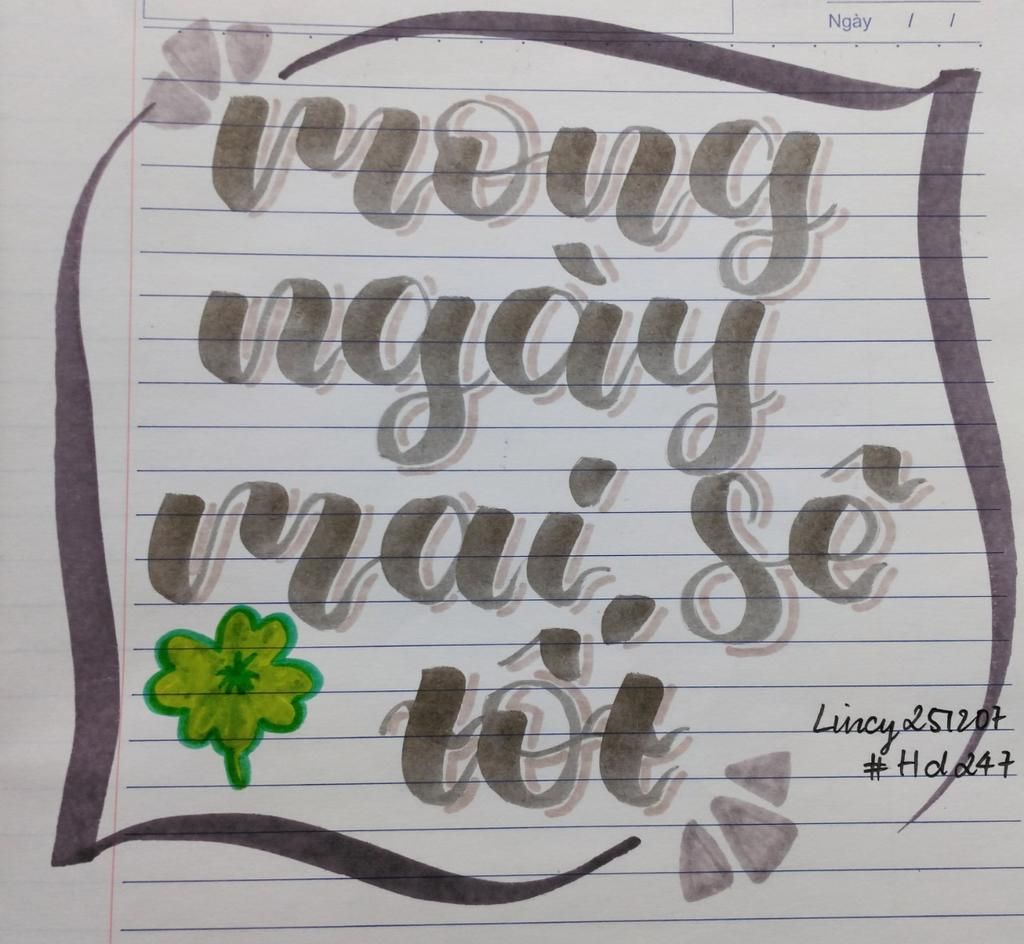 Ngày / /
mong
ngày
mai sẽ
tốt
Lincy251207
#Hd247